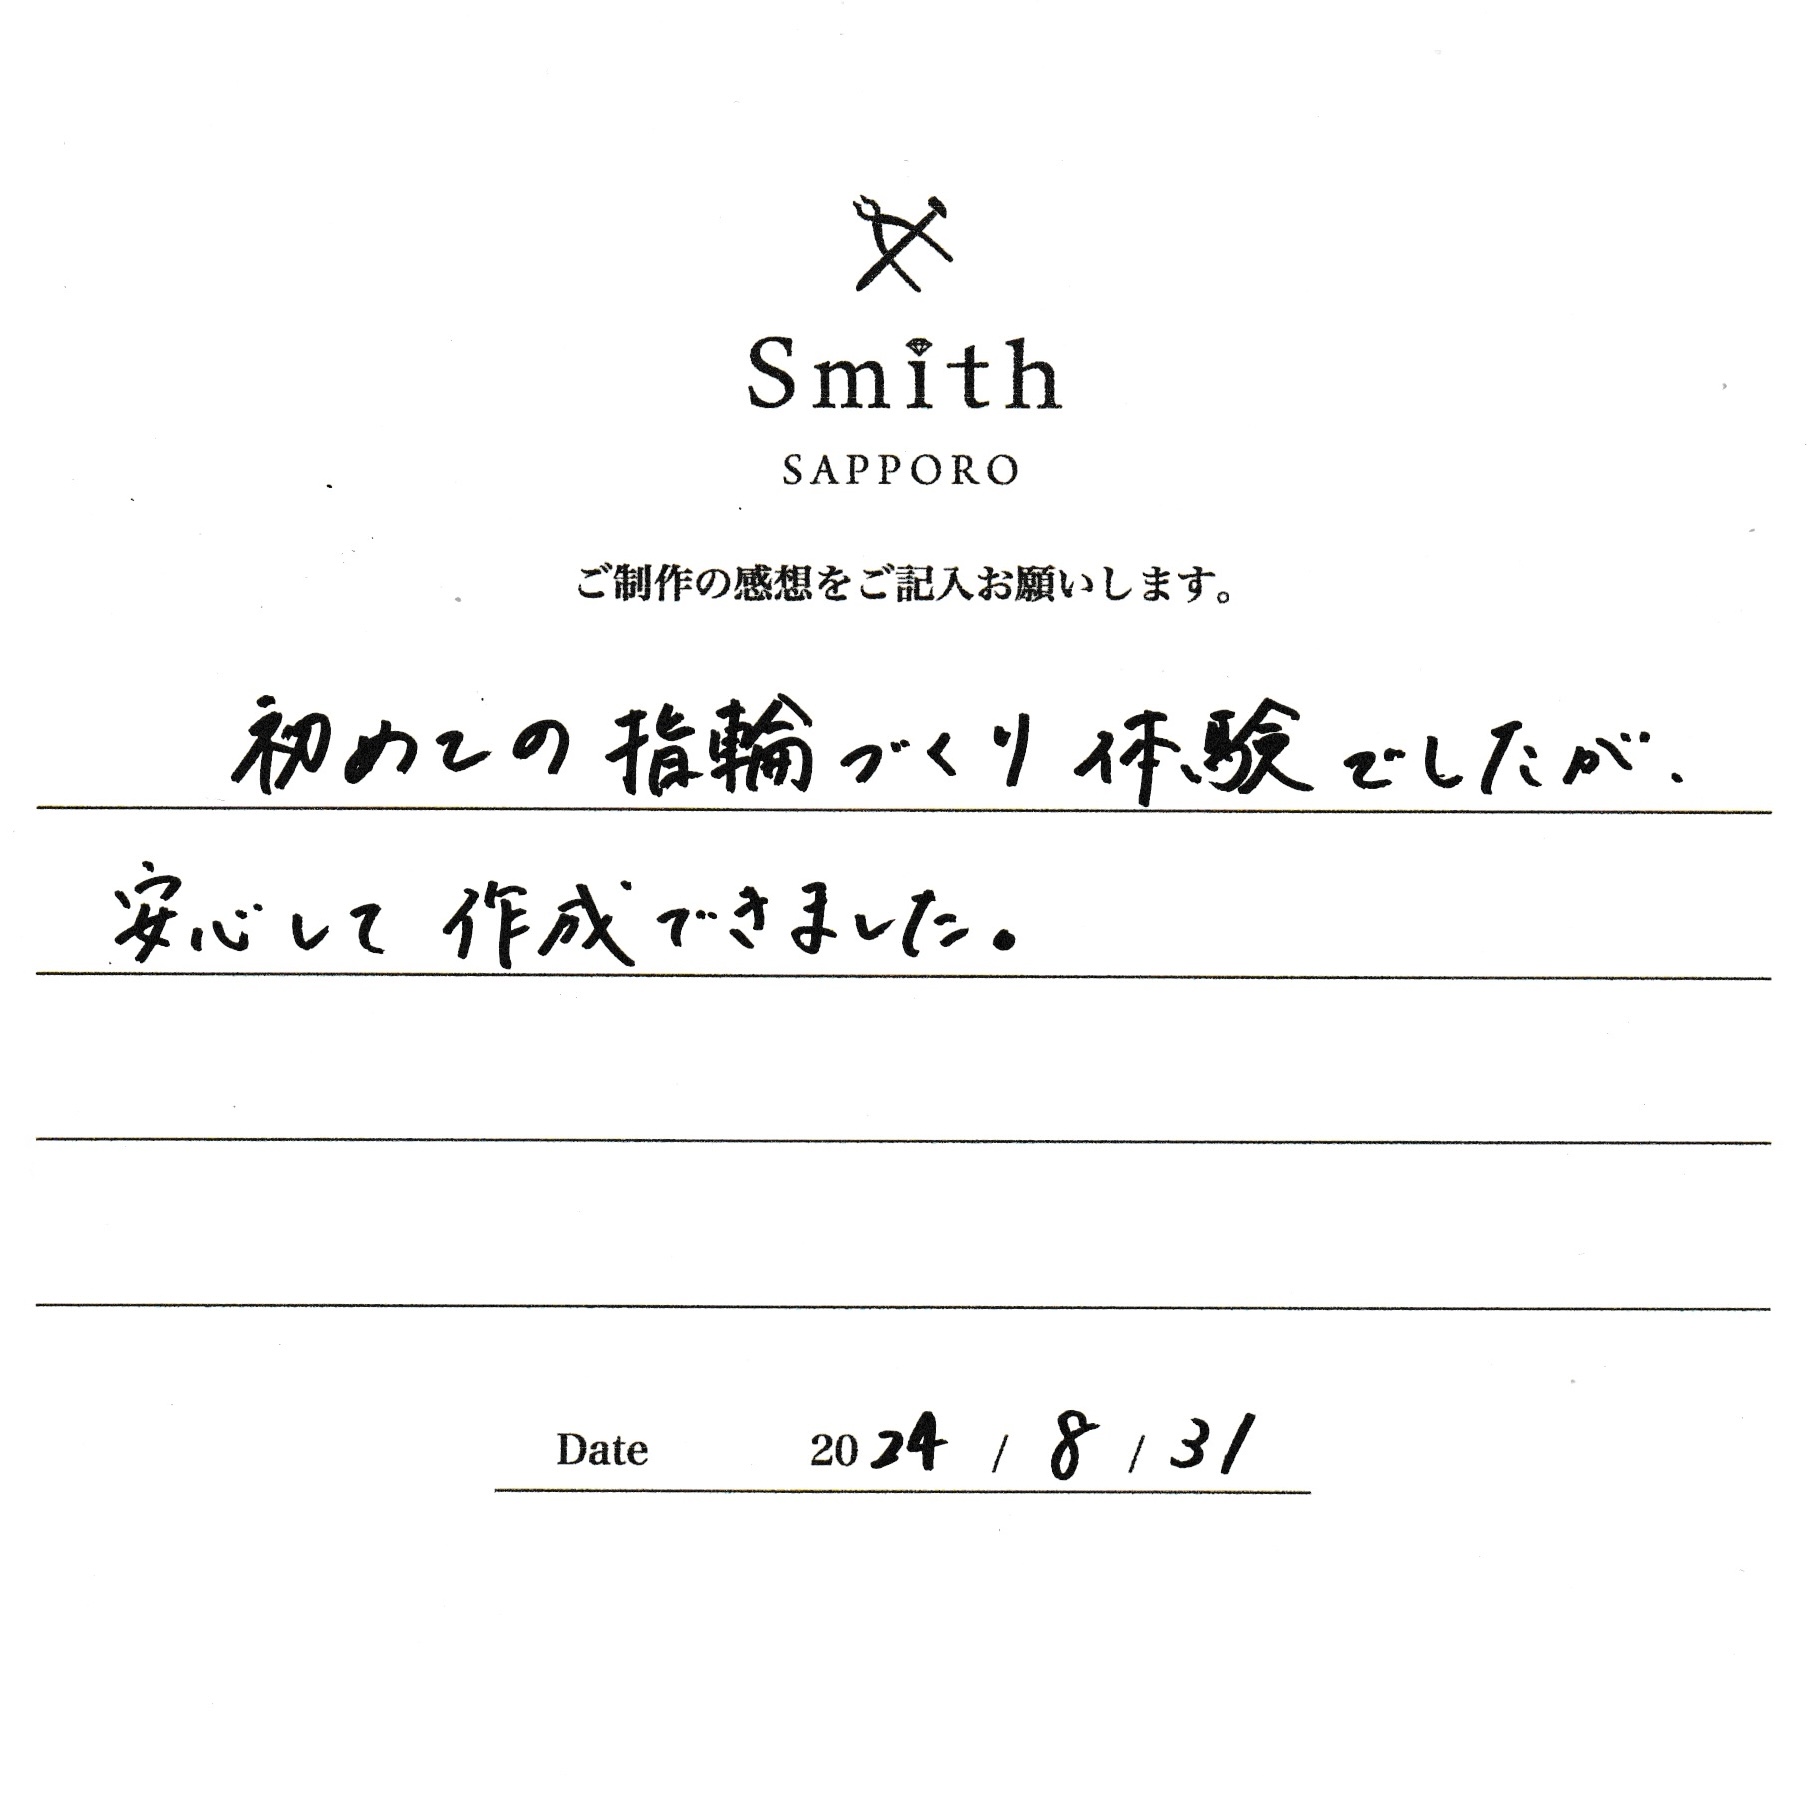 Smith
SAPPORO
ご制作の感想をご記入お願いします。
初めての指輪づくり体験でしたが、
安心して作成できました。
Date 2024 / 8 / 31